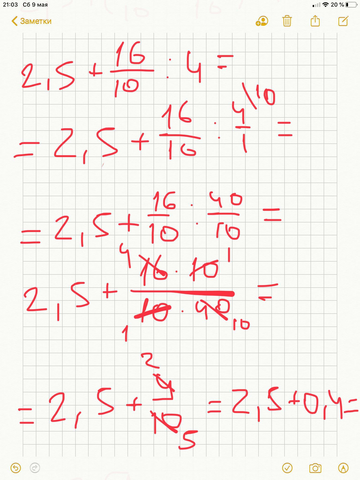 21:03 Сб 9 мая 20 %
Заметки
2,5 + 16/10 : 4 =
= 2,5 + 16/10 : 4/1 \10 =
= 2,5 + 16/10 : 40/10 =
2,5 + 4 16 · 10 1 / 1 10 · 40 10 =
= 2,5 + 2 4/10 5 = 2,5 + 0,4 =